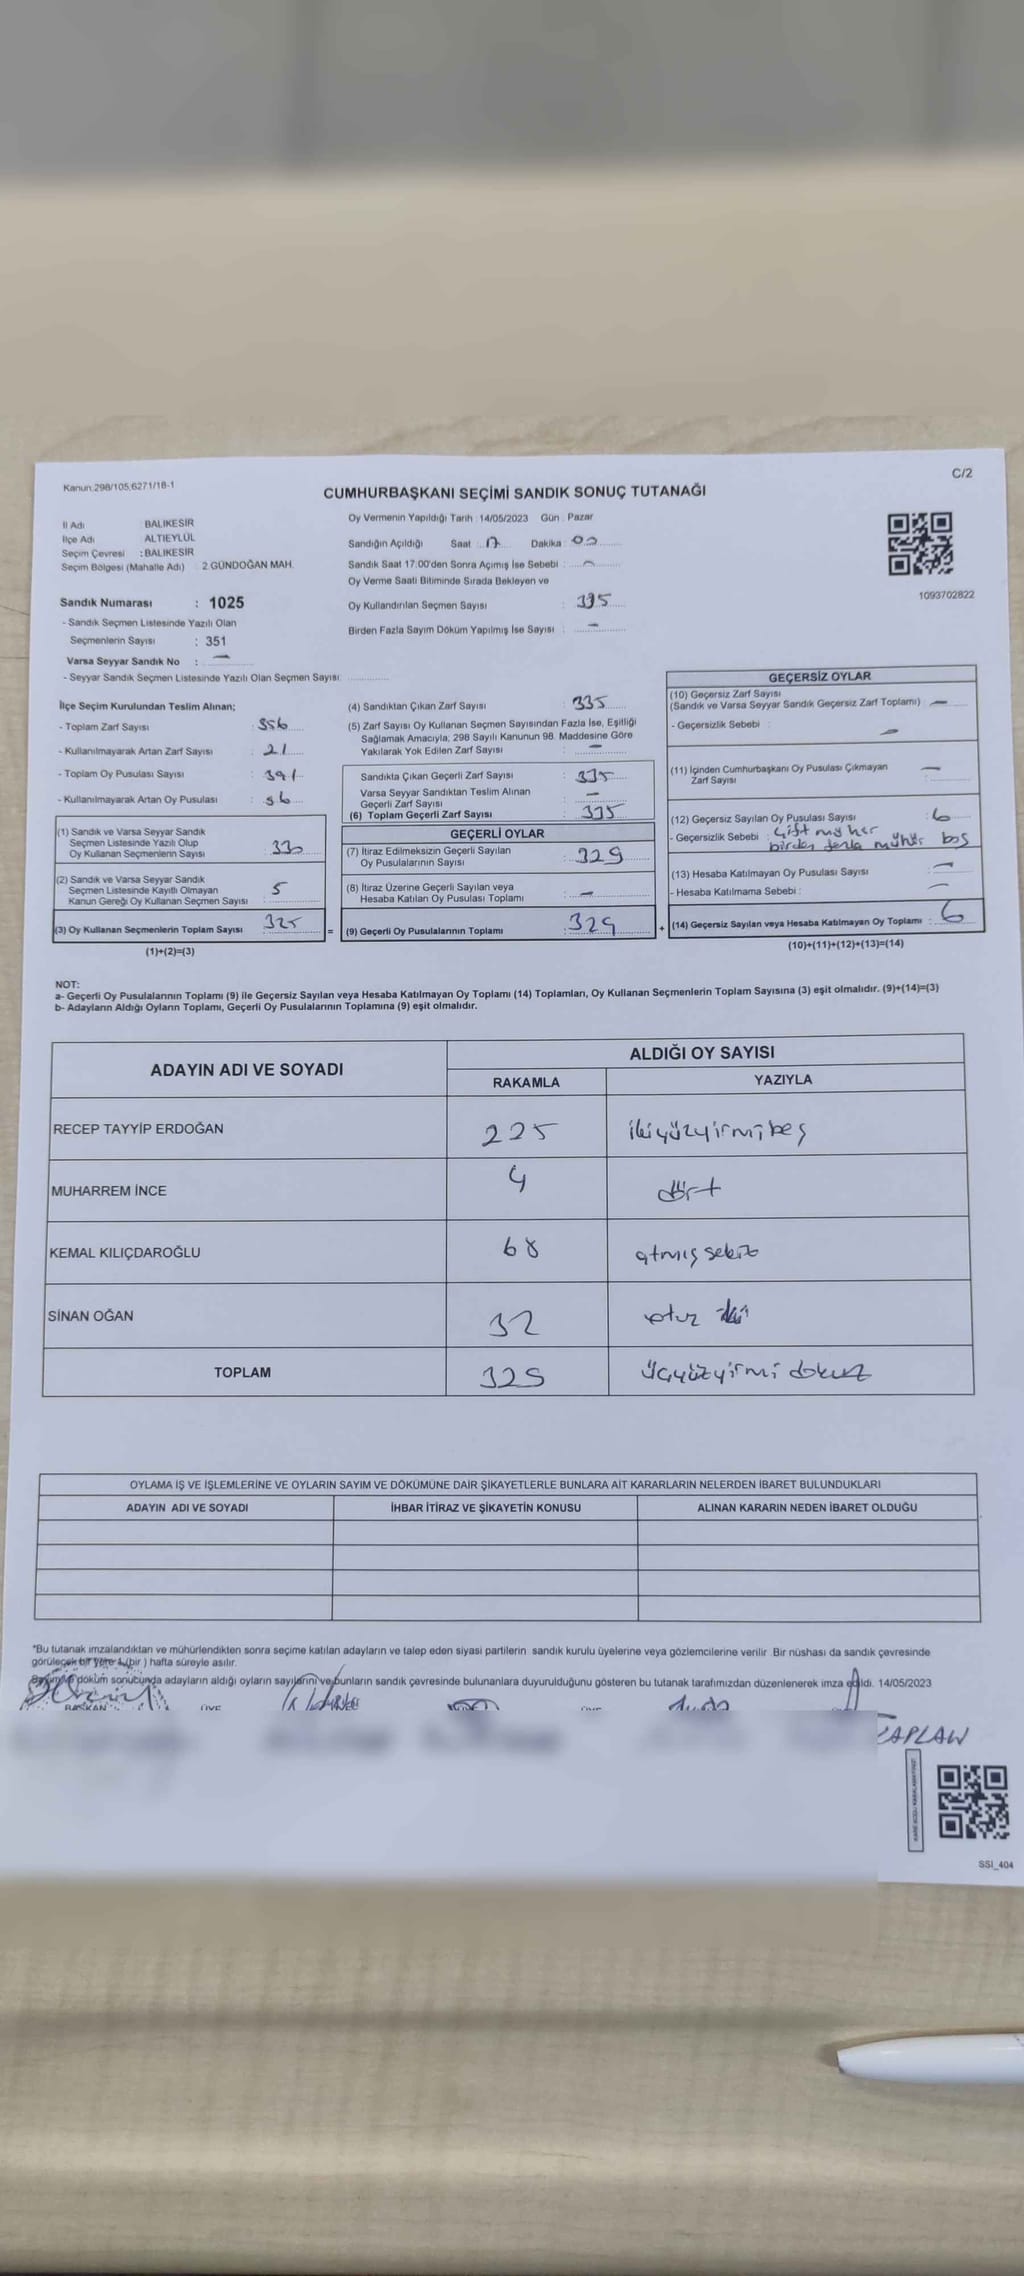 Kanun:298/105,6271/18-1
C/2
CUMHURBAŞKANI SEÇİMİ SANDIK SONUÇ TUTANAĞI
İl Adı BALIKESİR
İlçe Adı ALTIEYLÜL
Seçim Çevresi : BALIKESİR
Seçim Bölgesi (Mahalle Adı) 2 GÜNDOĞAN MAH.
Sandık Numarası : 1025
- Sandık Seçmen Listesinde Yazılı Olan
Seçmenlerin Sayısı : 351
Varsa Seyyar Sandık No : —
- Seyyar Sandık Seçmen Listesinde Yazılı Olan Seçmen Sayısı:
Oy Vermenin Yapıldığı Tarih 14/05/2023 Gün Pazar
Sandığın Açıldığı Saat 17 Dakika 00
Sandık Saat 17:00'den Sonra Açımış İse Sebebi : —
Oy Verme Saati Bitiminde Sırada Bekleyen ve
Oy Kullandırılan Seçmen Sayısı : 335
Birden Fazla Sayım Döküm Yapılmış İse Sayısı : —
1093702822
İlçe Seçim Kurulundan Teslim Alınan;
- Toplam Zarf Sayısı : 356
- Kullanılmayarak Artan Zarf Sayısı : 21
- Toplam Oy Pusulası Sayısı : 391
- Kullanılmayarak Artan Oy Pusulası : 56
(1) Sandık ve Varsa Seyyar Sandık
Seçmen Listesinde Yazılı Olup
Oy Kullanan Seçmenlerin Sayısı : 330
(2) Sandık ve Varsa Seyyar Sandık
Seçmen Listesinde Kayıtlı Olmayan
Kanun Gereği Oy Kullanan Seçmen Sayısı : 5
(3) Oy Kullanan Seçmenlerin Toplam Sayısı : 335 =
(1)+(2)=(3)
(4) Sandıktan Çıkan Zarf Sayısı : 335
(5) Zarf Sayısı Oy Kullanan Seçmen Sayısından Fazla İse, Eşitliği
Sağlamak Amacıyla, 298 Sayılı Kanunun 98. Maddesine Göre
Yakılarak Yok Edilen Zarf Sayısı : —
Sandıkta Çıkan Geçerli Zarf Sayısı : 335
Varsa Seyyar Sandıktan Teslim Alınan
Geçerli Zarf Sayısı : —
(6) Toplam Geçerli Zarf Sayısı : 335
GEÇERLİ OYLAR
(7) İtiraz Edilmeksizin Geçerli Sayılan
Oy Pusulalarının Sayısı : 329
(8) İtiraz Üzerine Geçerli Sayılan veya
Hesaba Katılan Oy Pusulası Toplamı : —
(9) Geçerli Oy Pusulalarının Toplamı : 329 +
GEÇERSİZ OYLAR
(10) Geçersiz Zarf Sayısı
(Sandık ve Varsa Seyyar Sandık Geçersiz Zarf Toplamı) : —
- Geçersizlik Sebebi : —
(11) İçinden Cumhurbaşkanı Oy Pusulası Çıkmayan
Zarf Sayısı : —
(12) Geçersiz Sayılan Oy Pusulası Sayısı : 6
- Geçersizlik Sebebi : çift mühür
birden fazla mühür boş
(13) Hesaba Katılmayan Oy Pusulası Sayısı : —
- Hesaba Katılmama Sebebi : —
(14) Geçersiz Sayılan veya Hesaba Katılmayan Oy Toplamı : 6
(10)+(11)+(12)+(13)=(14)
NOT:
a- Geçerli Oy Pusulalarının Toplamı (9) ile Geçersiz Sayılan veya Hesaba Katılmayan Oy Toplamı (14) Toplamları, Oy Kullanan Seçmenlerin Toplam Sayısına (3) eşit olmalıdır. (9)+(14)=(3)
b- Adayların Aldığı Oyların Toplamı, Geçerli Oy Pusulalarının Toplamına (9) eşit olmalıdır.
ADAYIN ADI VE SOYADI ALDIĞI OY SAYISI
RAKAMLA YAZIYLA
RECEP TAYYİP ERDOĞAN 225 ikiyüzyirmibeş
MUHARREM İNCE 4 dört
KEMAL KILIÇDAROĞLU 68 atmış sekiz
SİNAN OĞAN 32 otuz iki
TOPLAM 329 üçyüzyirmi dokuz
OYLAMA İŞ VE İŞLEMLERİNE VE OYLARIN SAYIM VE DÖKÜMÜNE DAİR ŞİKAYETLERLE BUNLARA AİT KARARLARIN NELERDEN İBARET BULUNDUKLARI
ADAYIN ADI VE SOYADI İHBAR İTİRAZ VE ŞİKAYETİN KONUSU ALINAN KARARIN NEDEN İBARET OLDUĞU
*Bu tutanak imzalandıktan ve mühürlendikten sonra seçime katılan adayların ve talep eden siyasi partilerin sandık kurulu üyelerine veya gözlemcilerine verilir. Bir nüshası da sandık çevresinde
görülecek bir yere 1 (bir) hafta süreyle asılır.
döküm sonucunda adayların aldığı oyların sayılarını ve bunların sandık çevresinde bulunanlara duyurulduğunu gösteren bu tutanak tarafımızdan düzenlenerek imza edildi. 14/05/2023
BAŞKAN ÜYE ÜYE
KAPLAN
SSI_404